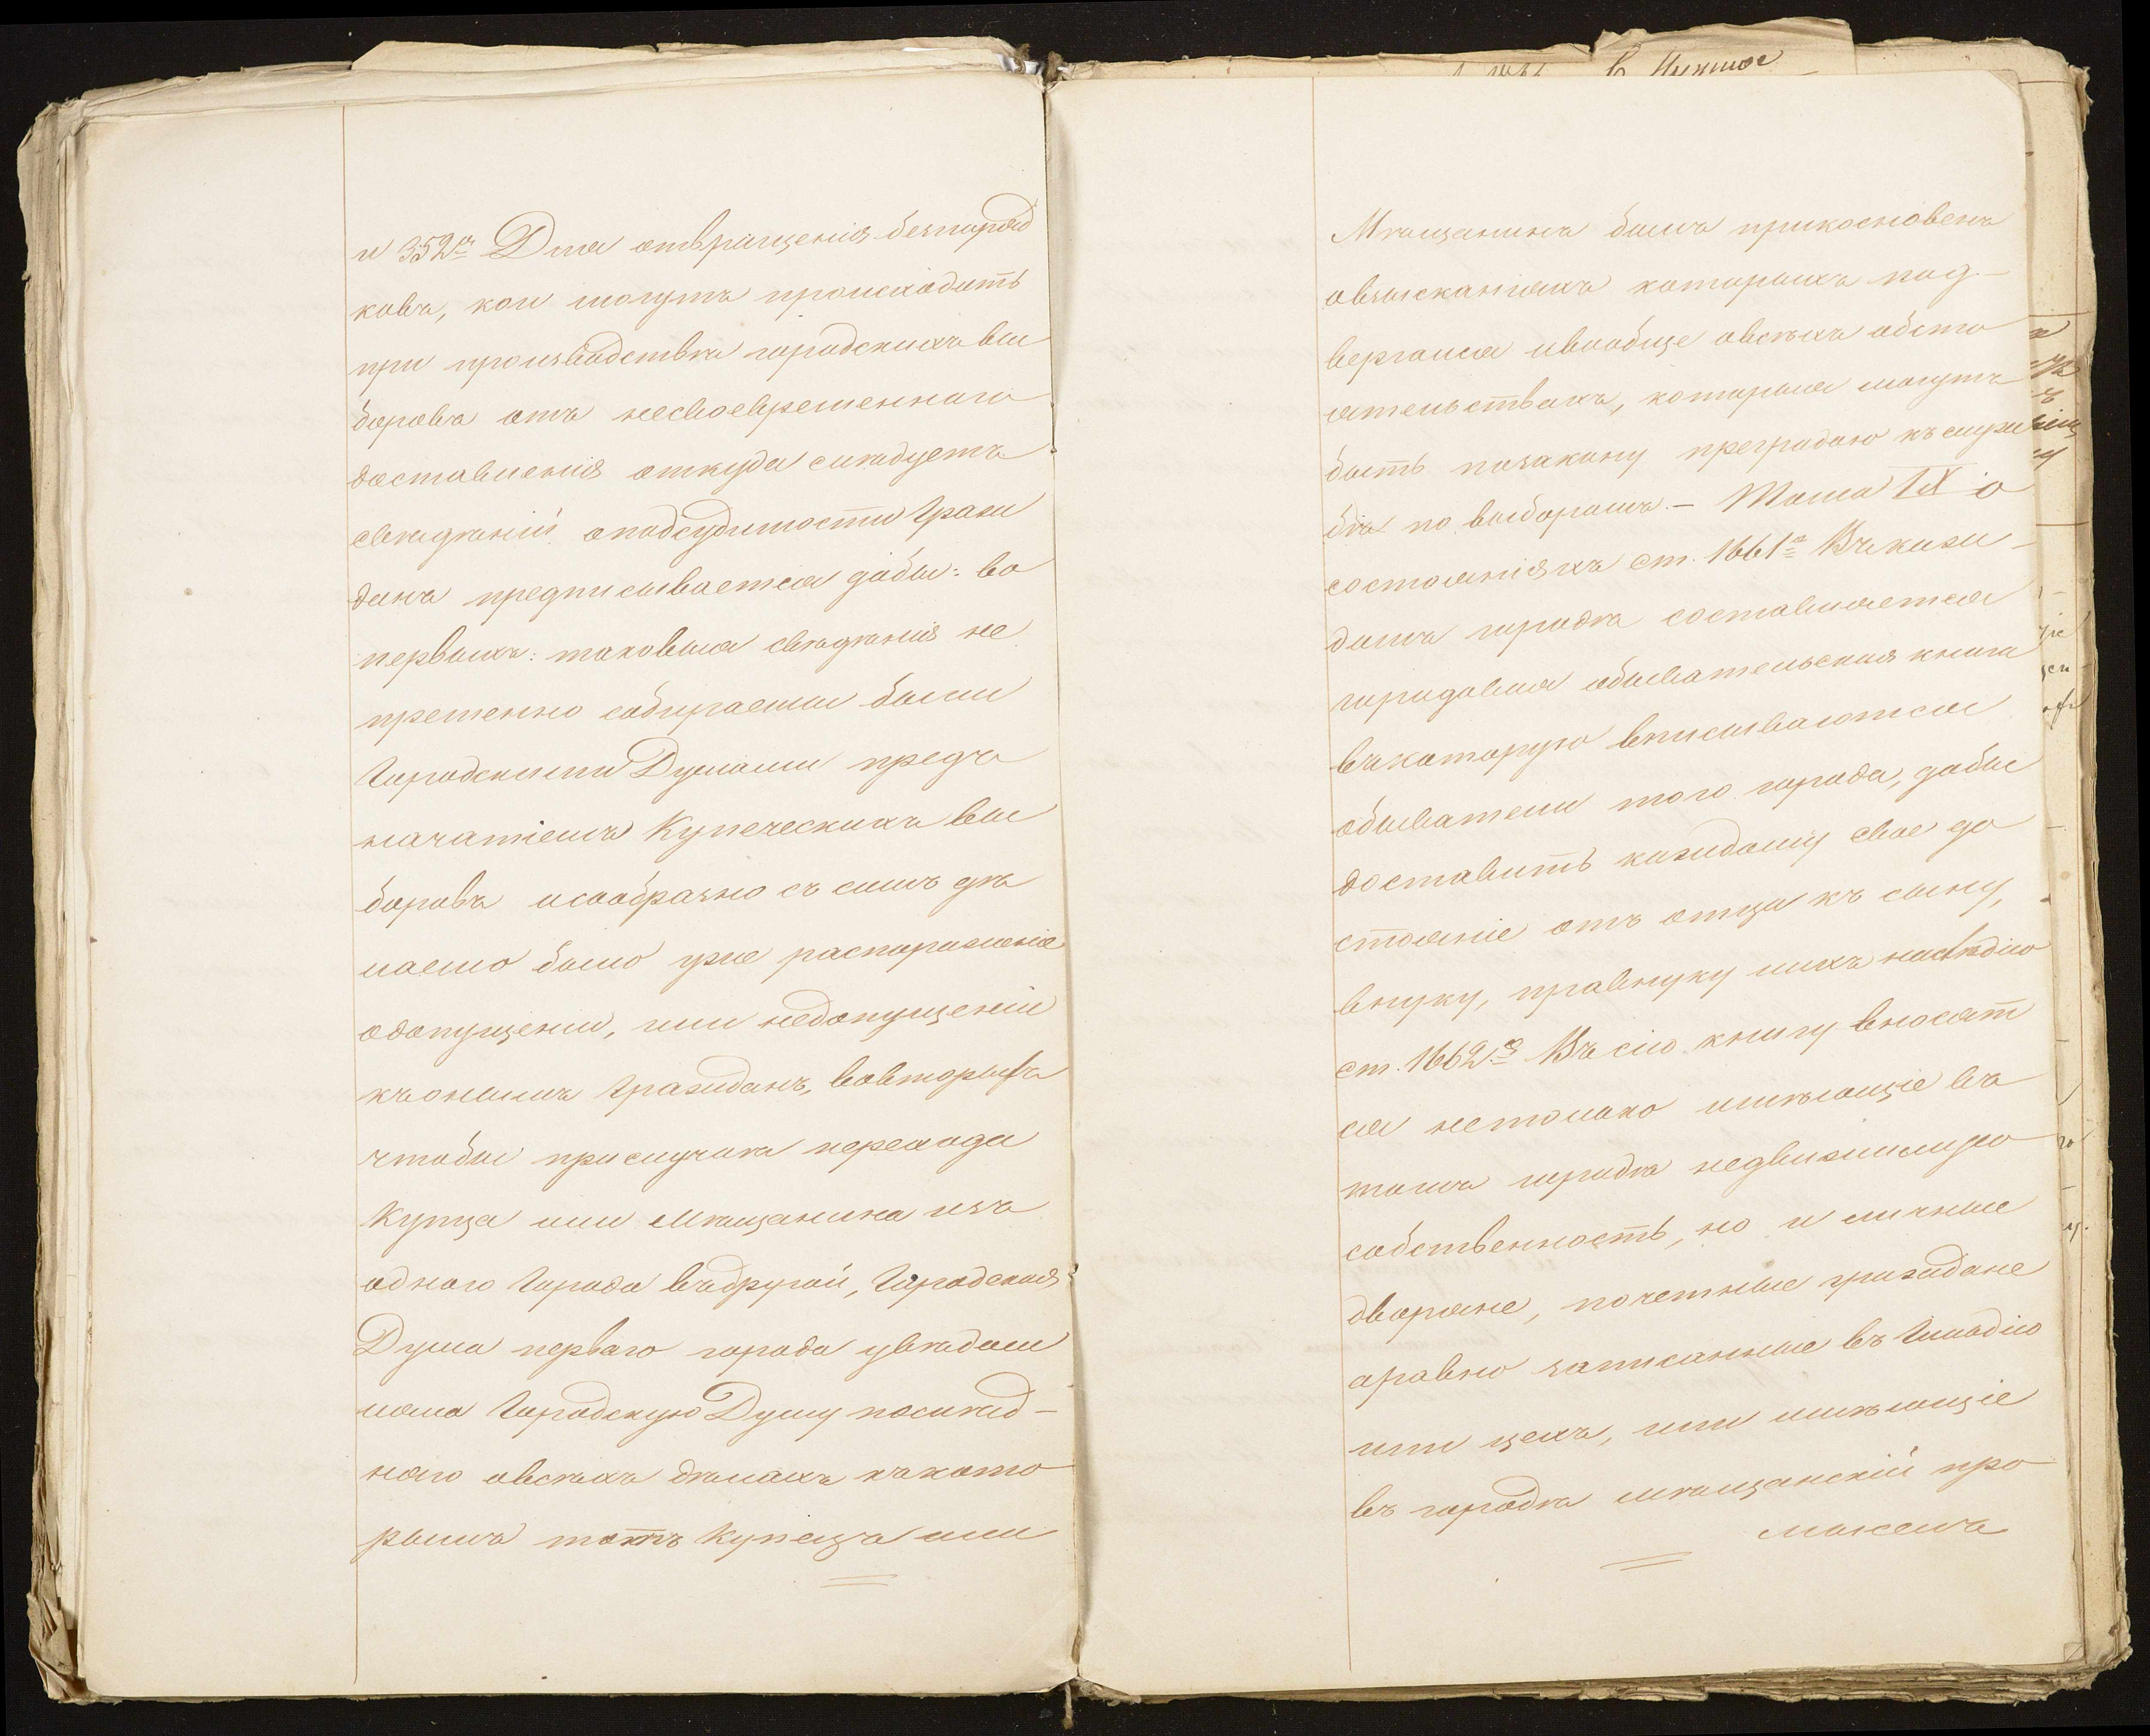 и 352<sup>я</sup> Для отвращенія безпоряд
ковъ, кои могутъ происходить
при производствѣ городскихъ вы
боровъ отъ несвоевременнаго
доставленія откуда слѣдуетъ
свѣдѣній оподсудимости Граж
данъ предписывается дабы: во
первыхъ: таковыя свѣдѣнія не
пременно собираемы были
Городскими Думами предъ
начатіемъ Купеческихъ вы
боровъ исообразно съ симъ дѣ
лаемо было уже распоряженіе
одопущеніи, или недопущеніи
къонымъ Гражданъ, вовторыхъ
чтобы прислучаѣ перехода
Купца или Мѣщанина изъ
одного Города въдругой, Городская
Дума перваго города увѣдом
ляла Городскую Думу послѣд-
няго овсѣхъ дѣлахъ къкото
рымъ тотъ Купецъ или
Мѣщанинъ былъ прикосновенъ
овзысканіяхъ которымъ под-
вергался ивообще овсѣхъ обсто
ятельствахъ, которыя могутъ
быть позакону преградою къслуж
бѣ по выборамъ. – Тома IX о
состояніяхъ ст. 1661<sup>я</sup> Въкаж-
домъ городѣ составляется
городовая обывательская книга
въкоторую вписываются
обыватели того города, дабы
доставить каждому свое до
стояніе отъ отца къ сыну,
внуку, правнуку ихъ наслѣдію
ст. 1662<sup>я</sup> Въ сію книгу вносят
ся нетолько имѣющіе въ
томъ городѣ недвижимую
собственность, но и личные
дворяне, почетные граждане
аравно записанные въ Гильдію
или цехъ, или имѣющіе
въ городѣ мѣщанскій про
мыселъ